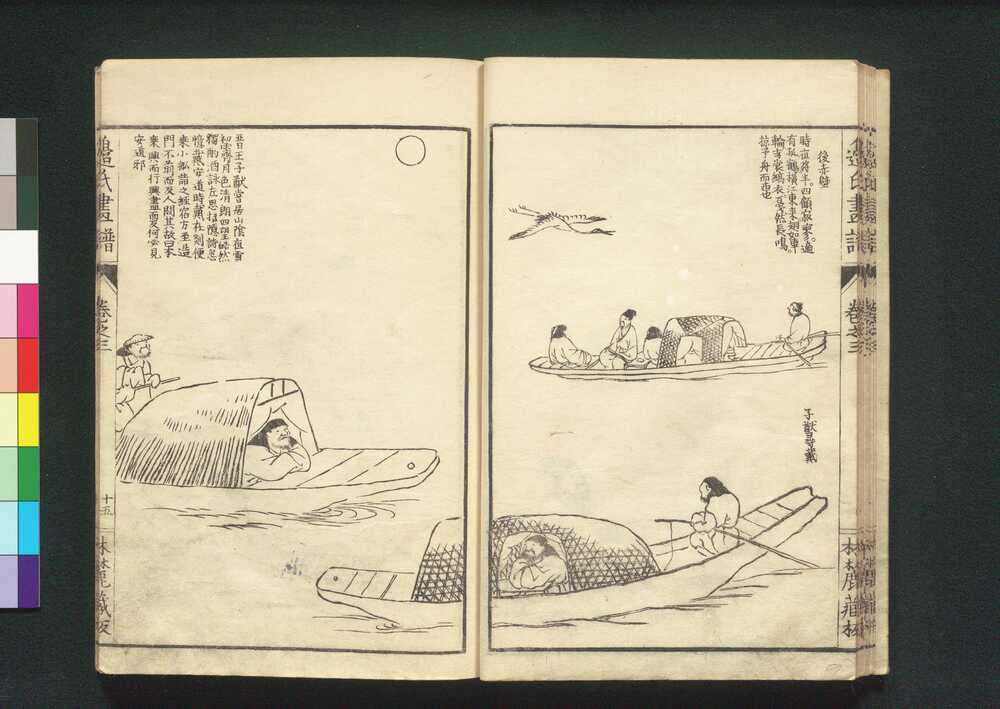 後赤壁
時夜將半。四顧寂寥。適
有孤鶴橫江東來翅如車
輪玄裳縞衣戛然長鳴
掠予舟而西也
子猷尋戴
氏畫譜
卷之三
林麓藏板
晉王子猷嘗居山陰夜雪
初霽月色清朗四望皓然
獨酌酒詠左思招隱詩忽
憶戴安道時戴在剡便
乘小舡詣之經宿方至造
門不前而反人問其故曰本
乘興而行興盡而反何必見
安道邪
氏畫譜
卷之三
十五
林麓藏板